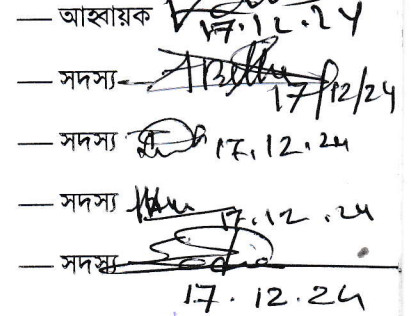 — আহ্বায়ক 17.12.24
— সদস্য 17/12/24
— সদস্য 17.12.24
— সদস্য 17.12.24
— সদস্য
17.12.24